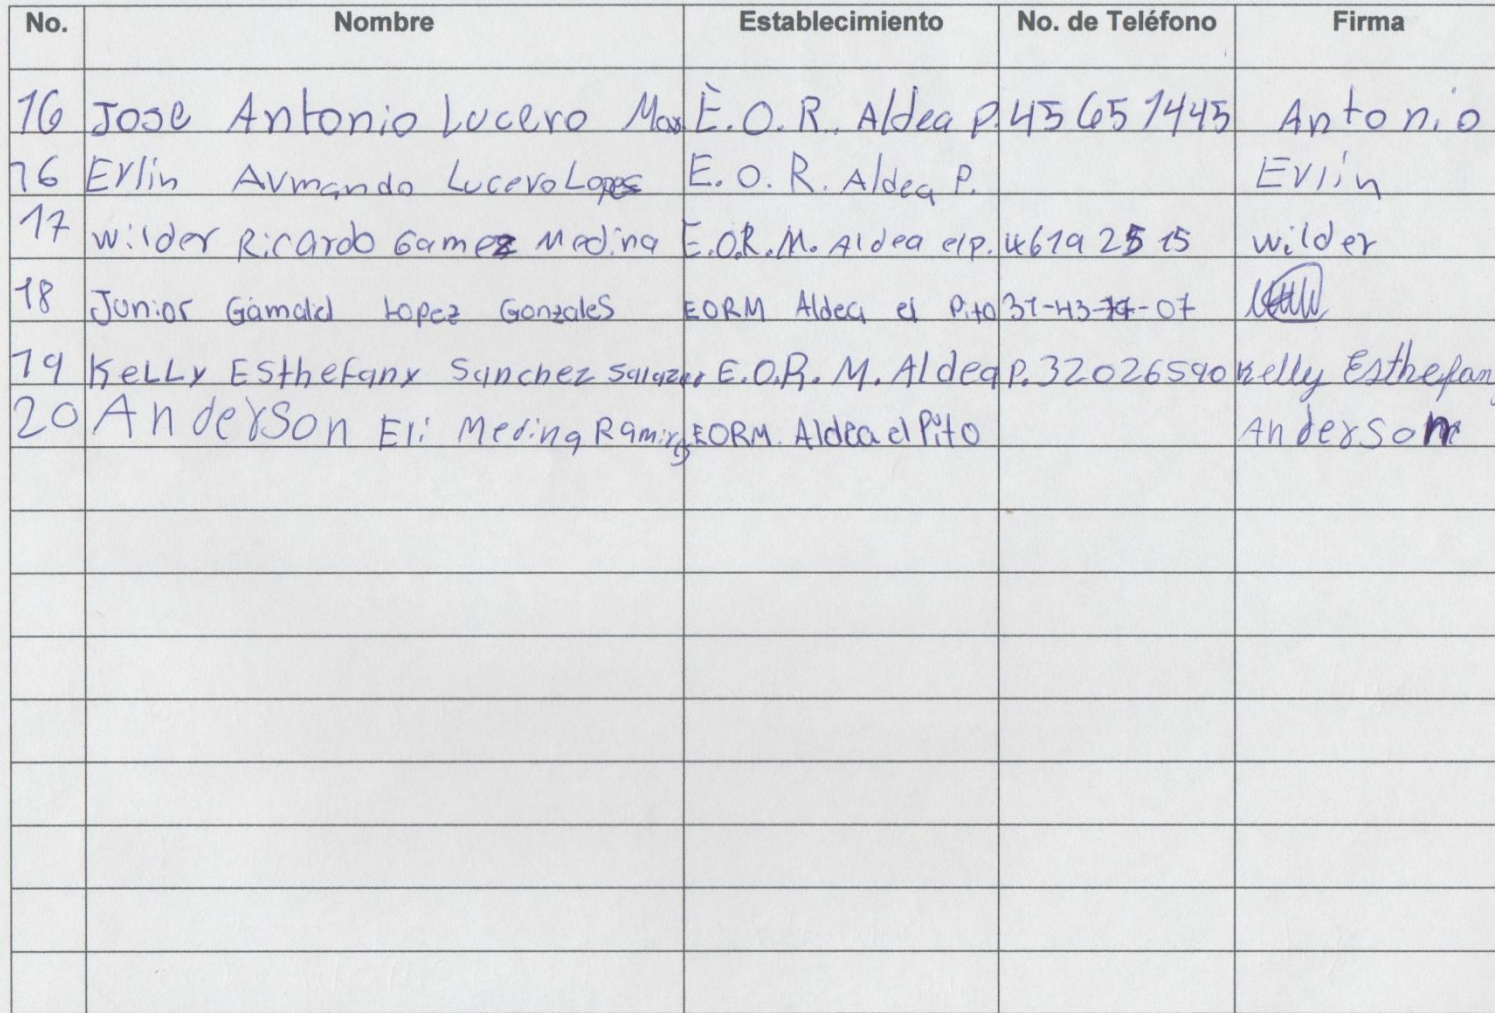 No. Nombre Establecimiento No. de Teléfono Firma
16 Jose Antonio Lucero E.O.R. Aldea P. 45651445 Antonio
16 Erlin Armando Lucero Lopes E.O.R. Aldea P. Erlin
17 Wilder Ricardo Gamez Medina E.O.R.M. Aldea el P. 46192515 wilder
18 Junior Lopez Gonzales EORM Aldea el Pito
19 Kelly Esthefany Sanchez Salazar E.O.R.M. Aldea P. 32026590 Kelly Esthefany
20 Anderson Eli Medina Ramirez EORM. Aldea el Pito Anderson